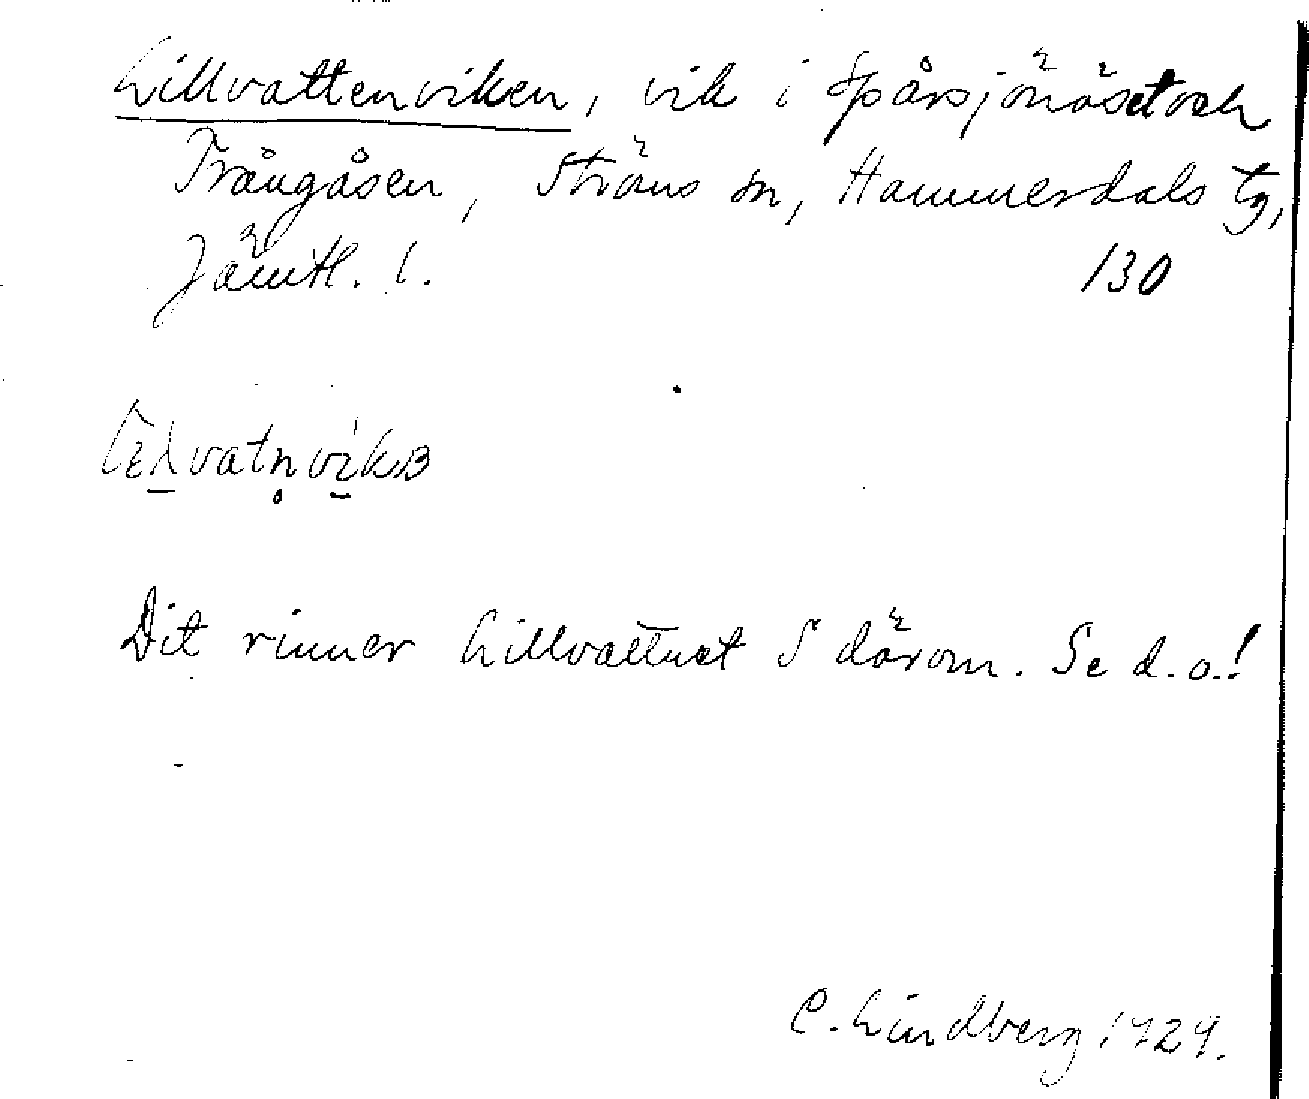 Lillvattenviken, vik i Spårsjönäset och
Trångåsen, Ströms sn, Hammerdals tg,
Jämtl. l.
130
Dit rinner Lillvattnet S därom. Se d.o.!
C. Lindberg 1929.